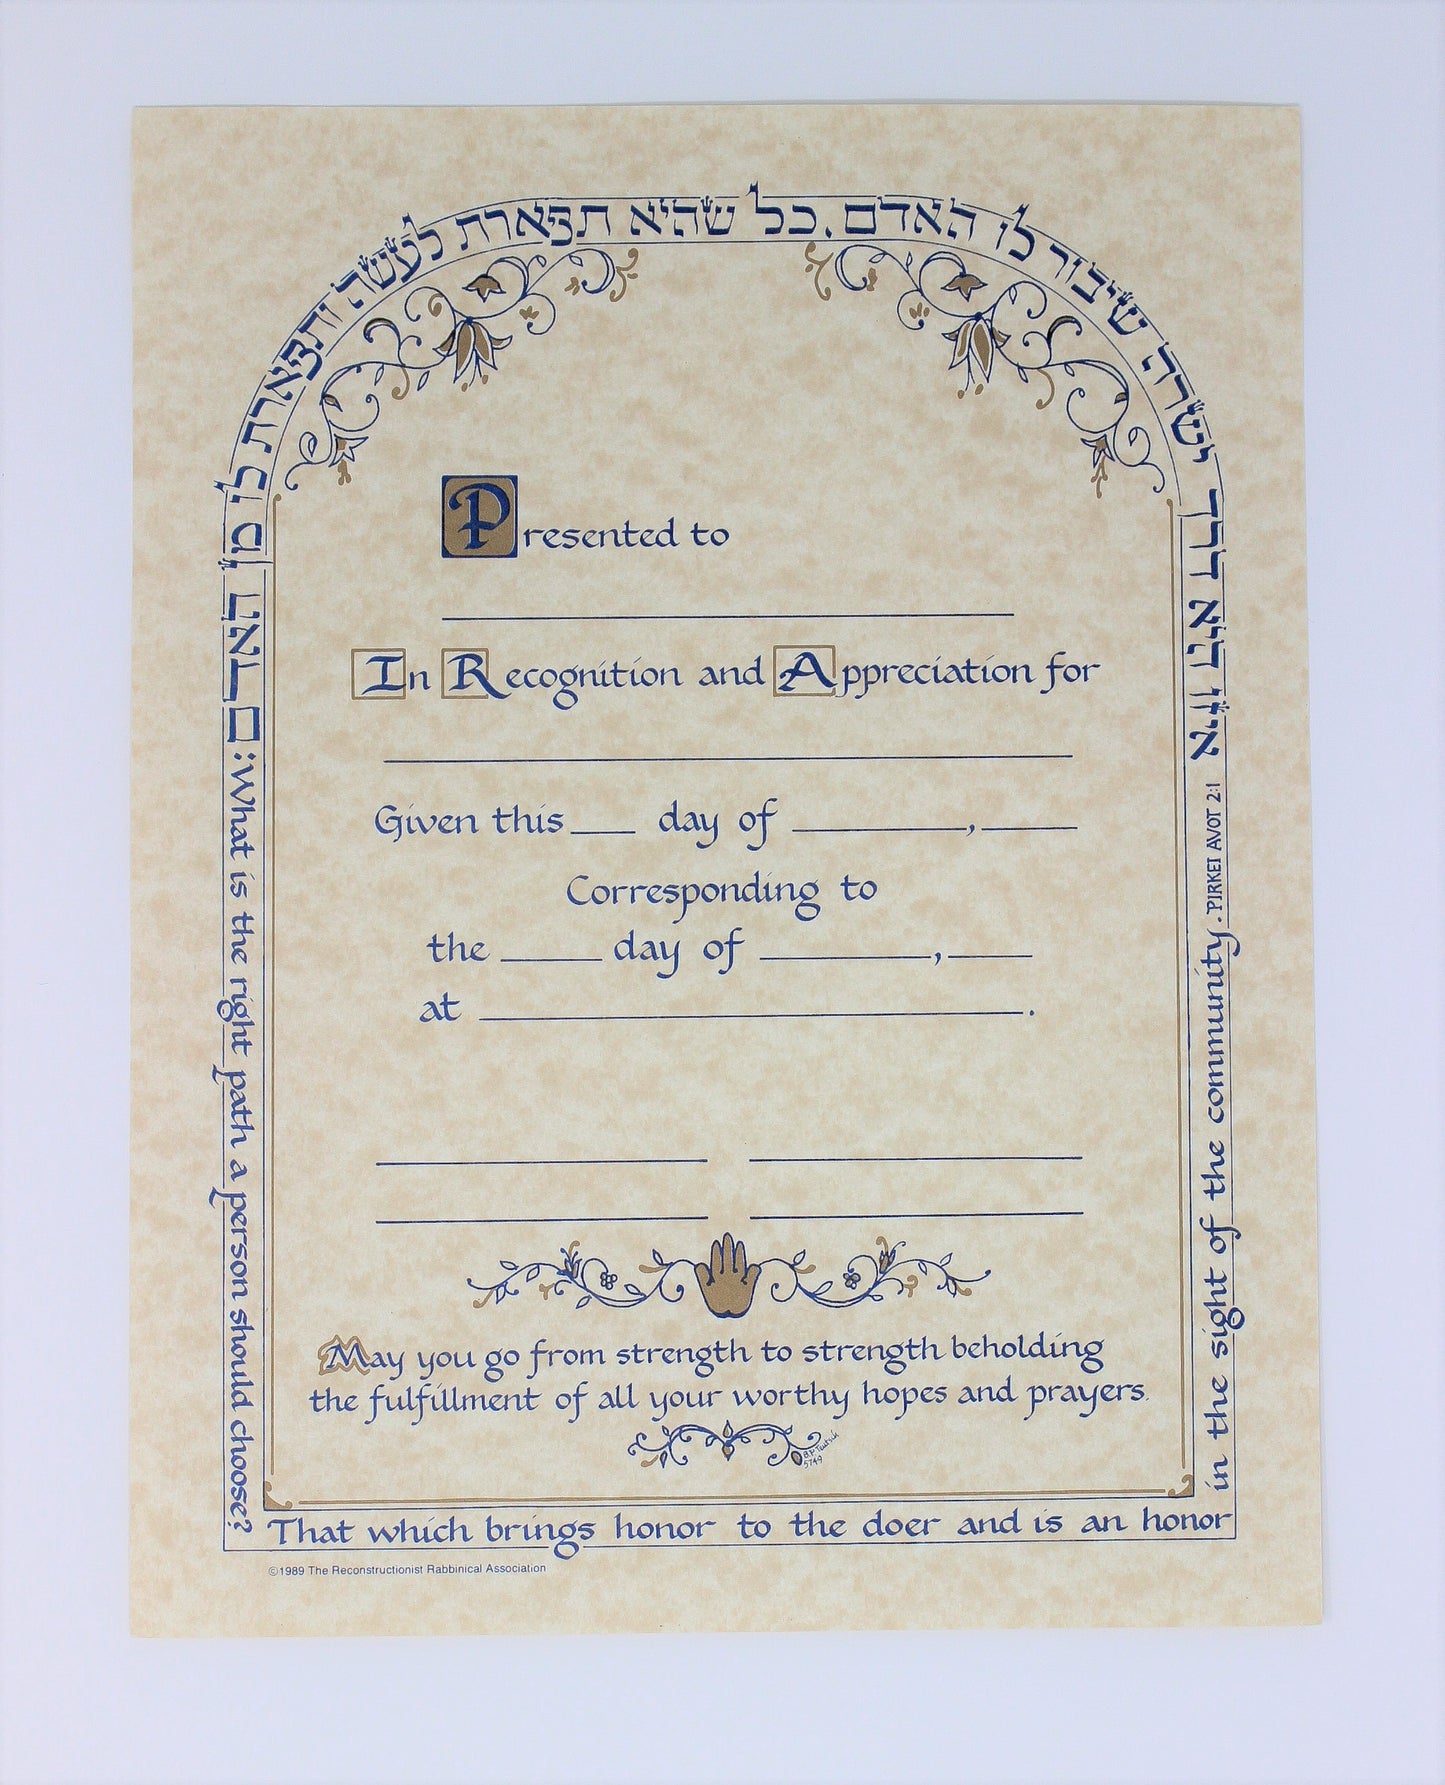 איזו היא דרך ישרה שיבור לו האדם. כל שהיא תפארת לעשה ותפארת לו מן האדם:
What is the right path a person should choose?
That which brings honor to the doer and is an honor
in the sight of the community. PIRKEI AVOT 2:1
Presented to
In Recognition and Appreciation for
Given this ___ day of ______, ____
Corresponding to
the ____ day of ______, ____
at ____________________.
May you go from strength to strength beholding
the fulfillment of all your worthy hopes and prayers.
B.P. Teutsch
5749
©1989 The Reconstructionist Rabbinical Association